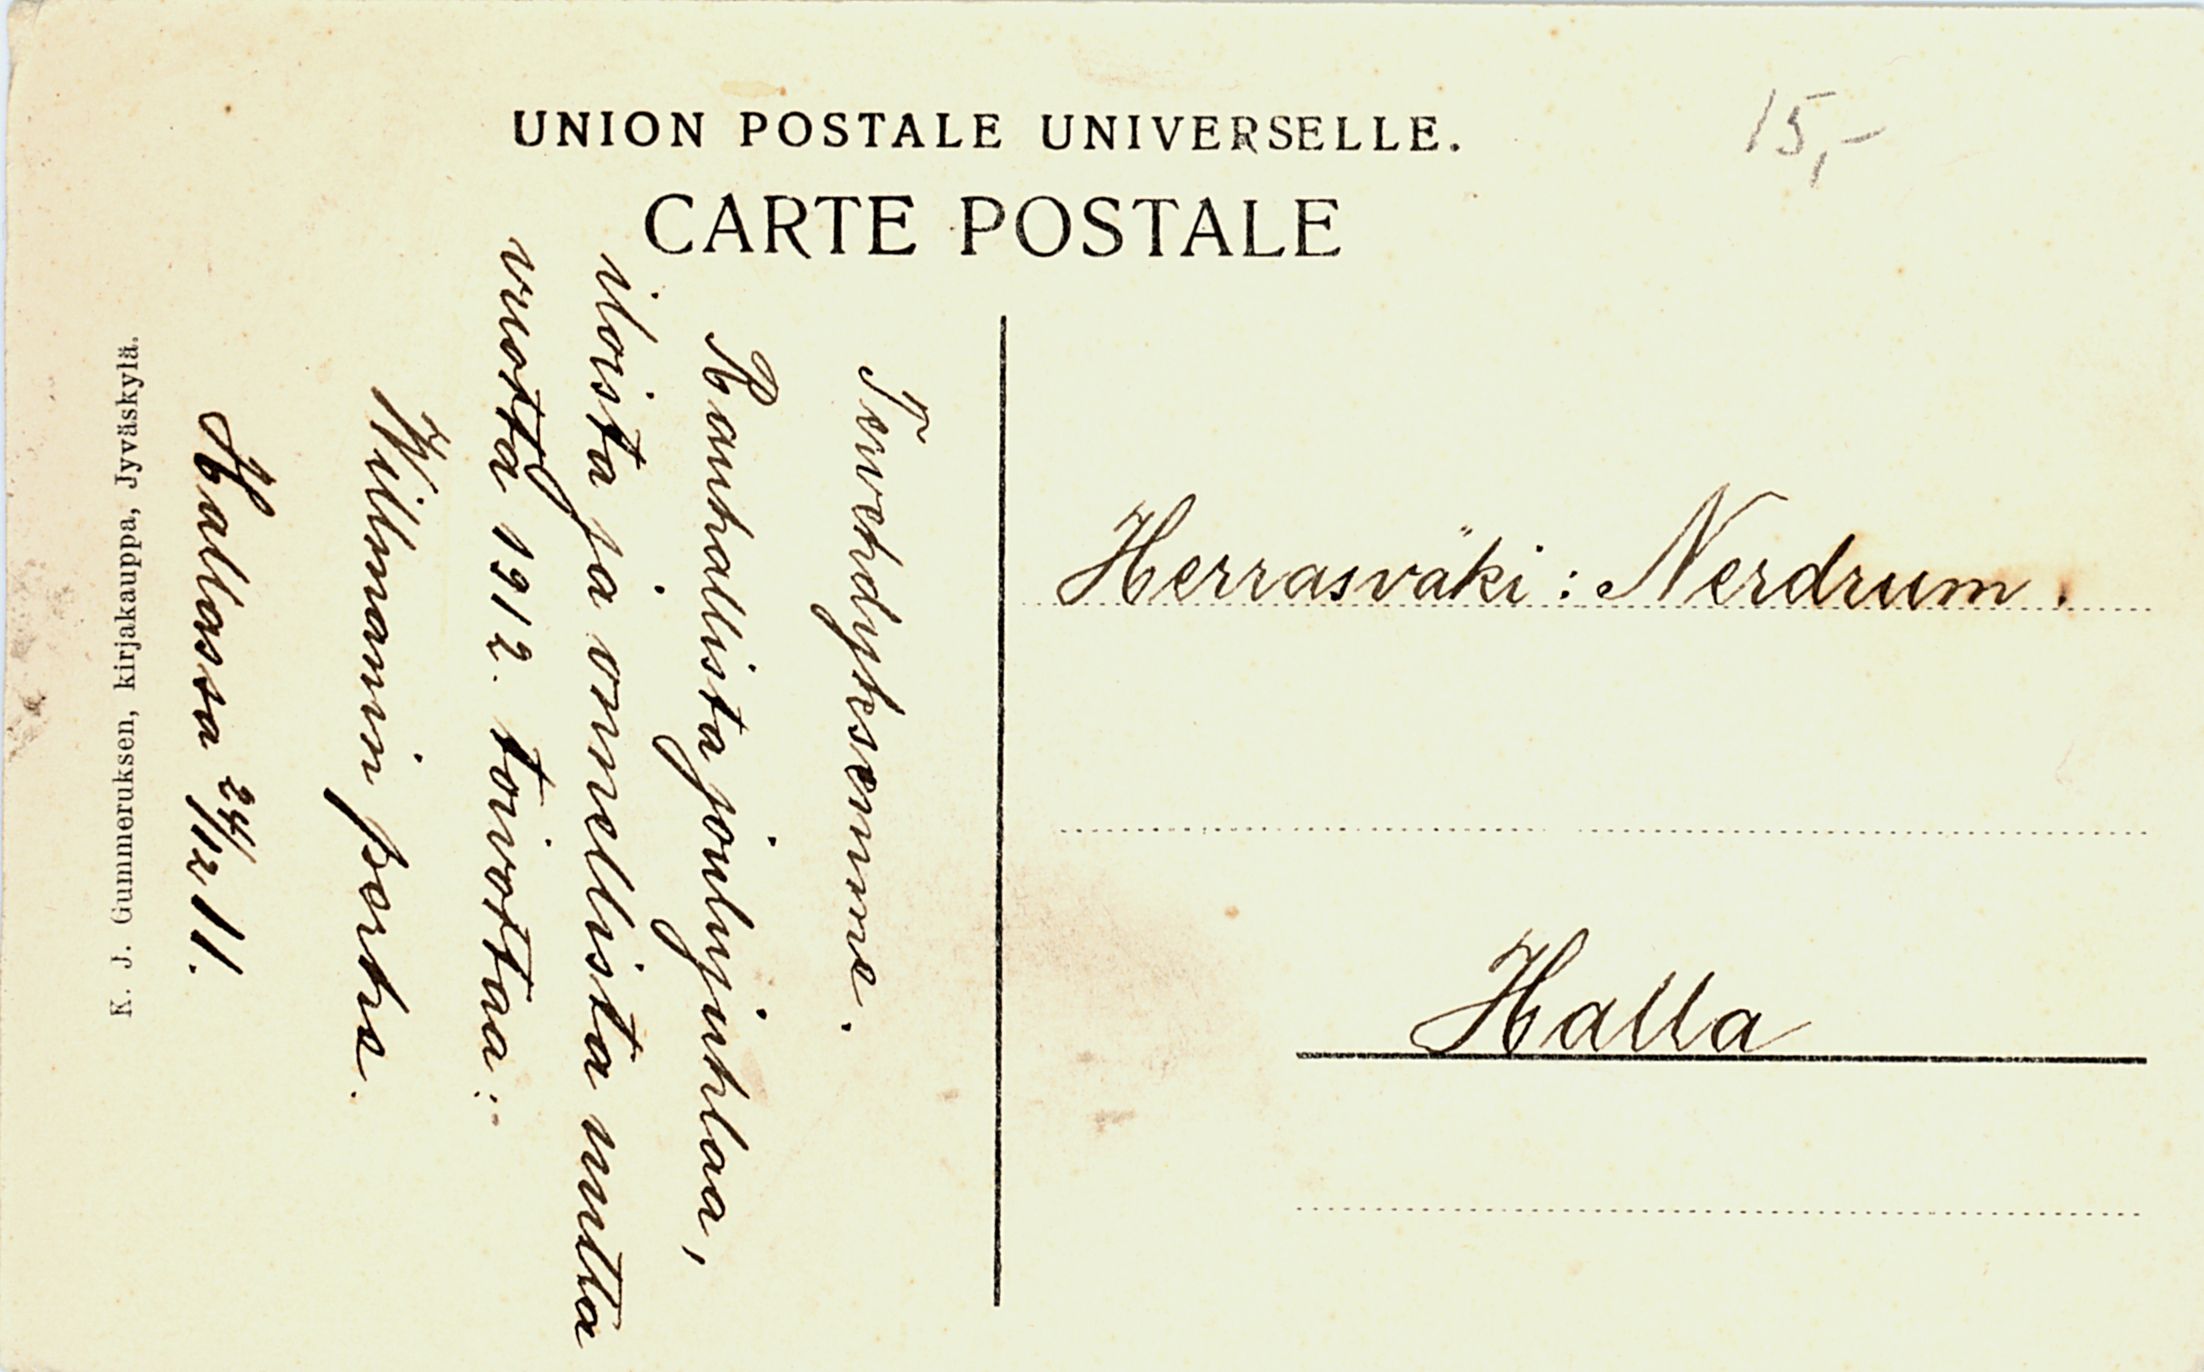 UNION POSTALE UNIVERSELLE.
CARTE POSTALE
15,-
Tervehdyksemme.
Rauhallista joulujuhlaa,
iloista ja onnellista uutta
vuotta 1912. toivottaa:
Willmanin perhe.
Hallassa 24/12 11.
Herrasväki: Nerdrum.
Halla
K. J. Gummeruksen, kirjakauppa, Jyväskylä.